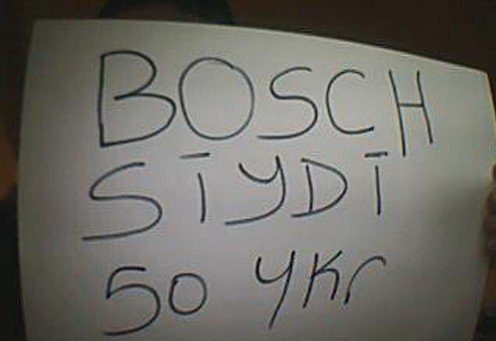 BOSCH
SİYDİ
50 YKr